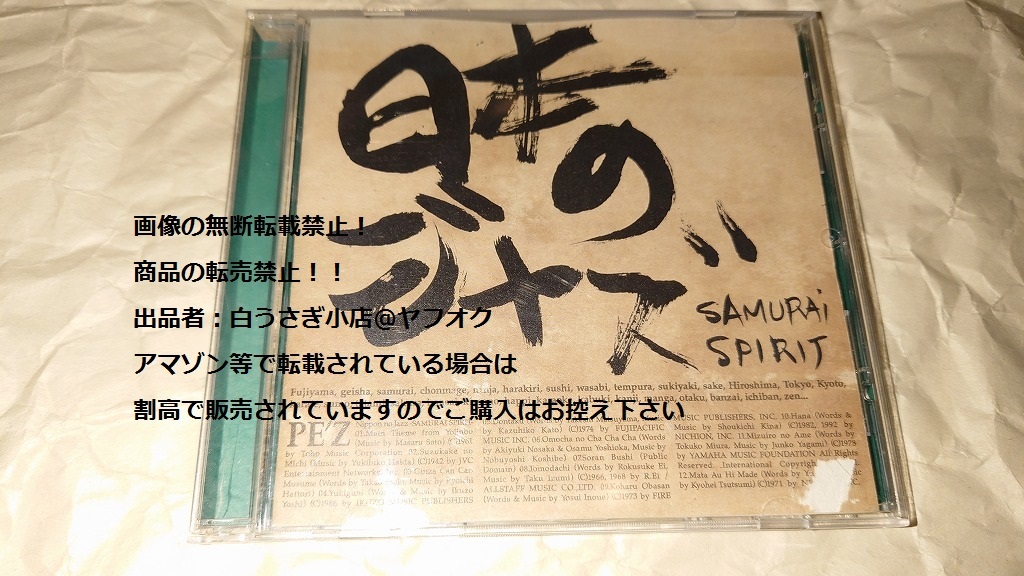 日本の
ジャズ
SAMURAi
SPIRIT
画像の無断転載禁止！
商品の転売禁止！！
出品者：白うさぎ小店@ヤフオク
アマゾン等で転載されている場合は
割高で販売されていますのでご購入はお控え下さい
Fujiyama, geisha, samurai, chonmage, ninja, harakiri, sushi, wasabi, tempura, sukiyaki, sake, Hiroshima, Tokyo, Kyoto,
kabuki, kanji, manga, otaku, banzai, ichiban, zen...
PE'Z
Nippon no Jazz -SAMURAI SPIRIT-
(Music by Masaru Sato) (C)1961
by Toho Music Corporation
Michi (Music by (C)1942 by JVC
Entertainment Networks, Inc.
by Kazuhiko Kato) (C)1974 by FUJIPACIFIC
MUSIC INC. 06.Omocha no Cha Cha Cha (Words
by Akiyuki Nosaka & Osamu Yoshioka, Music by
Nobuyoshi Koshibe) 07.Soran Bushi (Public
Domain) 08.Tomodachi (Words by Rokusuke Ei,
Music by Taku Izumi) (C)1966, 1968 by R.Ei /
ALLSTAFF MUSIC CO.,LTD. 09.Koharu Obasan
(Words & Music by Yosui Inoue) (C)1973 by FIRE
MUSIC PUBLISHERS, INC. 10.Hana (Words &
Music by Shoukichi Kina) (C)1982, 1992 by
NICHION, INC. 11.Mizuiro no Ame (Words by
Tokuko Miura, Music by Junko Yagami) (C)1978
by YAMAHA MUSIC FOUNDATION All Rights
Reserved. International Copyright
12.Mata Au Hi Made (Words by
by Kyohei Tsutsumi) (C)1971 by